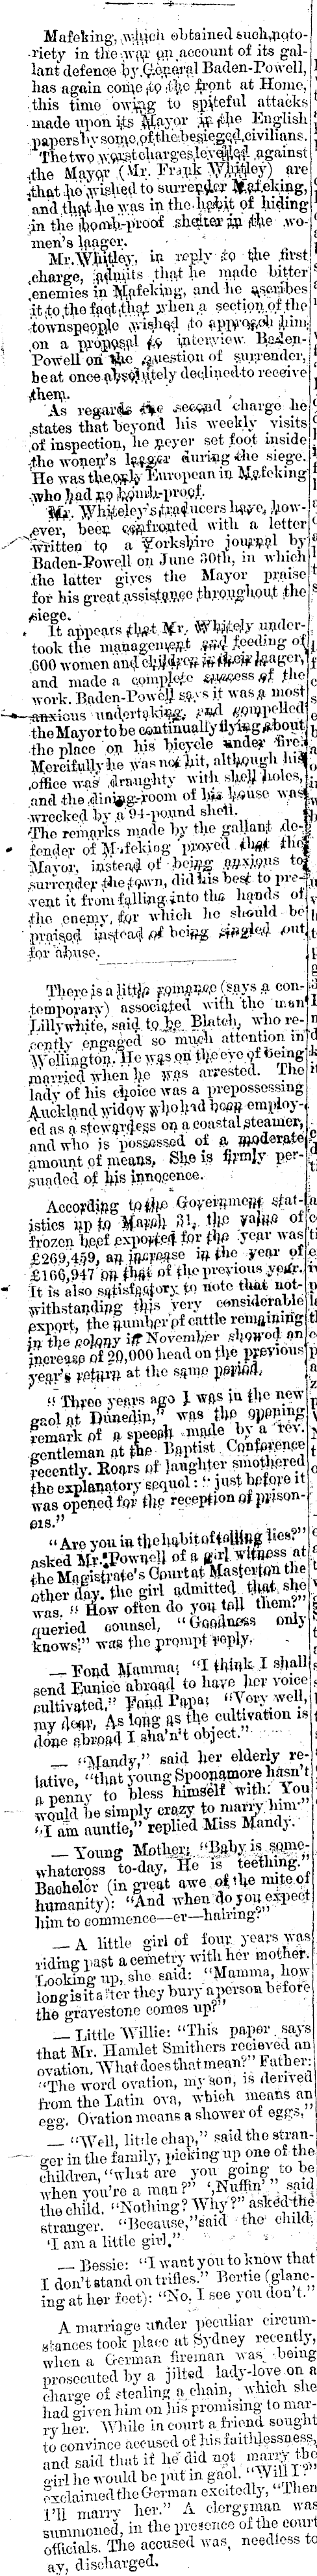 Mafeking, which obtained such noto-
riety in the war on account of its gal-
lant defence by General Baden-Powell,
has again come to the front at Home,
this time owing to spiteful attacks
made upon its Mayor in the English
papers by some of the besieged civilians.
The two worst charges levelled against
the Mayor (Mr. Frank Whitley) are
that he wished to surrender Mafeking,
and that he was in the habit of hiding
in the bomb-proof shelter in the wo-
men's laager.
Mr. Whitley, in reply to the first
charge, admits that he made bitter
enemies in Mafeking, and he ascribes
it to the fact that when a section of the
townspeople wished to approach him
on a proposal to interview Baden-
Powell on the question of surrender,
he at once absolutely declined to receive
them.
As regards the second charge he
states that beyond his weekly visits
of inspection, he never set foot inside
the women's laager during the siege.
He was the only European in Mafeking
who had no bomb-proof.
Mr. Whiteley's traducers have, how-
ever, been confronted with a letter
written to a Yorkshire journal by
Baden-Powell on June 30th, in which
the latter gives the Mayor praise
for his great assistance throughout the
siege.
It appears that Mr. Whitely under-
took the management and feeding of
600 women and children in their laager,
and made a complete success of the
work. Baden-Powell says it was a most
anxious undertaking, and compelled
the Mayor to be continually flying about
the place on his bicycle under fire.
Mercifully he was not hit, although his
office was draughty with shell holes,
and the dining-room of his house was
wrecked by a 94-pound shell.
The remarks made by the gallant de-
fender of Mafeking proved that the
Mayor, instead of being anxious to
surrender the town, did his best to pre-
vent it from falling into the hands of
the enemy, for which he should be
praised instead of being singled out
for abuse.
There is a little romance (says a con-
temporary) associated with the man
Lillywhite, said to be Blatch, who re-
cently engaged so much attention in
Wellington. He was on the eve of being
married when he was arrested. The
lady of his choice was a prepossessing
Auckland widow who had been employ-
ed as a stewardess on a coastal steamer,
and who is possessed of a moderate
amount of means. She is firmly per-
suaded of his innocence.
According to the Government stat-
istics up to March 31, the value of
frozen beef exported for the year was
£269,459, an increase in the year of
£166,947 on that of the previous year.
It is also satisfactory to note that not-
withstanding this very considerable
export, the number of cattle remaining
in the colony in November showed an
increase of 20,000 head on the previous
year's return at the same period.
"Three years ago I was in the new
gaol at Dunedin," was the opening
remark of a speech made by a rev.
gentleman at the Baptist Conference
recently. Roars of laughter smothered
the explanatory sequel: "just before it
was opened for the reception of prison-
ers."
"Are you in the habit of telling lies?"
asked Mr. Pownell of a girl witness at
the Magistrate's Court at Masterton the
other day. the girl admitted that she
was. "How often do you tell them?"
queried counsel, "Goodness only
knows!" was the prompt reply.
— Fond Mamma: "I think I shall
send Eunice abroad to have her voice
cultivated." Fond Papa: "Very well,
my dear, As long as the cultivation is
done abroad I sha'n't object."
— "Mandy," said her elderly re-
lative, "that young Spoonamore hasn't
a penny to bless himself with. You
would be simply crazy to marry him"
"I am auntie," replied Miss Mandy.
— Young Mother: "Baby is some-
what cross to-day. He is teething."
Bachelor (in great awe of the mite of
humanity): "And when do you expect
him to commence—er—hairing?"
— A little girl of four years was
riding past a cemetry with her mother.
Looking up, she said: "Mamma, how
long is it after they bury a person before
the gravestone comes up?"
— Little Willie: "This paper says
that Mr. Hamlet Smithers recieved an
ovation. What does that mean?" Father:
"The word ovation, my son, is derived
from the Latin ova, which means an
egg. Ovation means a shower of eggs."
— "Well, little chap," said the stran-
ger in the family, picking up one of the
children, "what are you going to be
when you're a man?" 'Nuffin'" said
the child. "Nothing? Why?" asked the
stranger. "Because," said the child,
'I am a little girl."
— Bessie: "I want you to know that
I don't stand on trifles." Bertie (glanc-
ing at her feet): "No, I see you don't."
A marriage under peculiar circum-
stances took place at Sydney recently,
when a German fireman was being
prosecuted by a jilted lady-love on a
charge of stealing a chain, which she
had given him on his promising to mar-
ry her. While in court a friend sought
to convince accused of his faithlessness,
and said that if he did not marry the
girl he would be put in gaol. "Will I?"
exclaimed the German excitedly, "Then
I'll marry her." A clergyman was
summoned, in the presence of the court
officials. The accused was, needless to
ay, discharged.